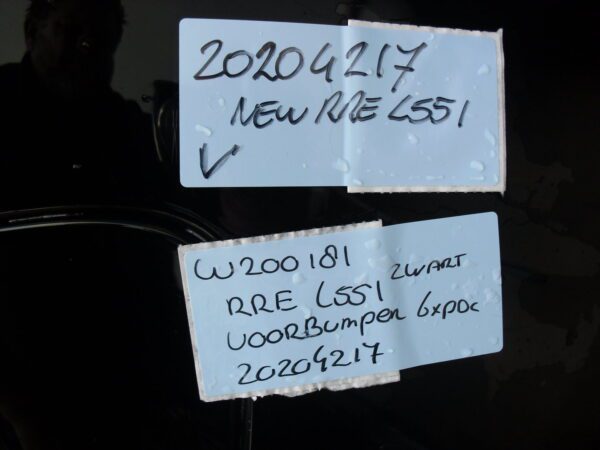 20204217
NEW RRE L551
V
W200181
RRE L551 ZWART
VOORBUMPER 6xPDC
20204217